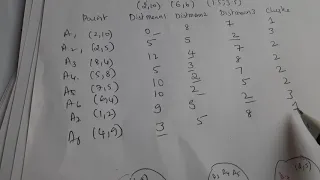 (2,10) (6,6) (1.5,3.5)
Point Distmean1 Distmean2 Distmean3 Cluster
A1 (2,10) 0 8 7 1
A2, (2,5) 5 5 2 3
A3 (8,4) 12 4 7 2
A4. (5,8) 5 3 8 2
A5 (7,5) 10 2 7 2
A6 (6,4) 10 2 5 2
A7 (1,2) 9 9 2 3
A8 (4,9) 3 5 8 1